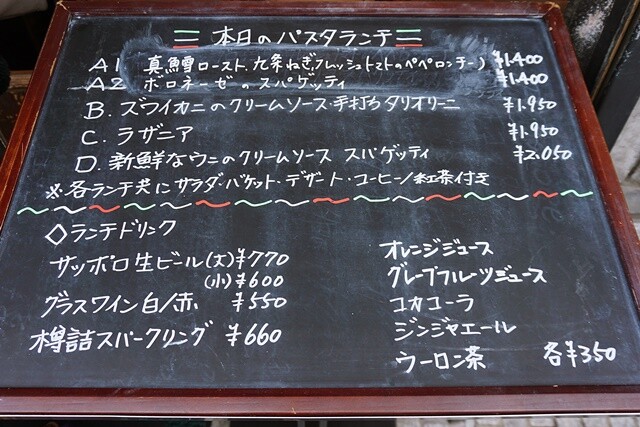 本日のパスタランチ
A1 真鱈ロースト、九条ねぎ、フレッシュトマトのペペロンチーノ ¥1.400
A2 ボロネーゼのスパゲッティ ¥1.400
B. ズワイカニのクリームソース・手打ちタリオリーニ ¥1.950
C. ラザニア ¥1.950
D. 新鮮なウニのクリームソース スパゲッティ ¥2.050
※各ランチ共にサラダ・バケット・デザート・コーヒー/紅茶付き
◇ランチドリンク
サッポロ生ビール(大)¥770
(小)¥600
グラスワイン白/赤 ¥550
樽詰スパークリング ¥660
オレンジジュース
グレープフルーツジュース
コカコーラ
ジンジャエール
ウーロン茶 各¥350